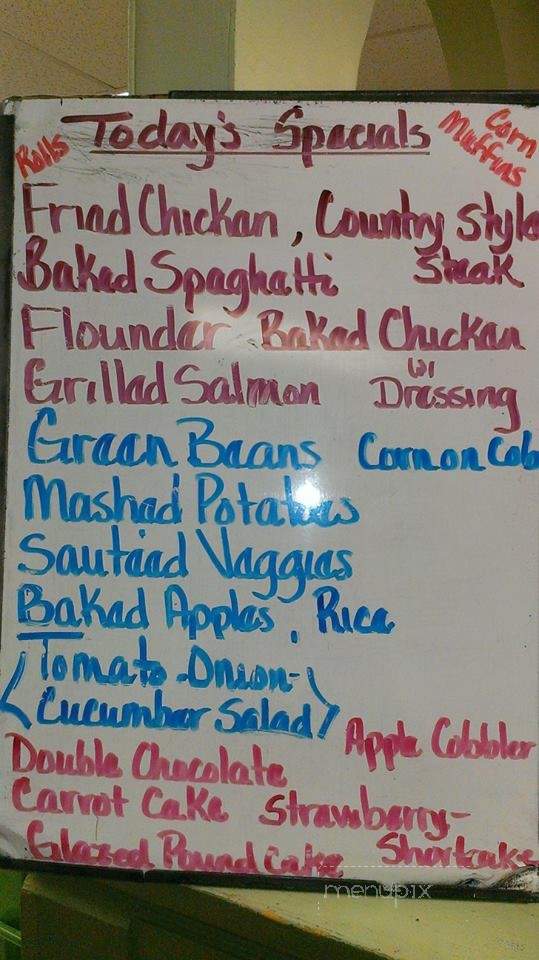 Today's Specials
Rolls
Corn Muffins
Fried Chicken, Country Style Steak
Baked Spaghetti
Flounder Baked Chicken w/ Dressing
Grilled Salmon
Green Beans Corn on Cob
Mashed Potatoes
Sauteed Veggies
Baked Apples, Rice
(Tomato-Onion-
Cucumber Salad)
Apple Cobbler
Double Chocolate
Carrot Cake Strawberry-
Shortcake
Glazed Pound Cake
menupix